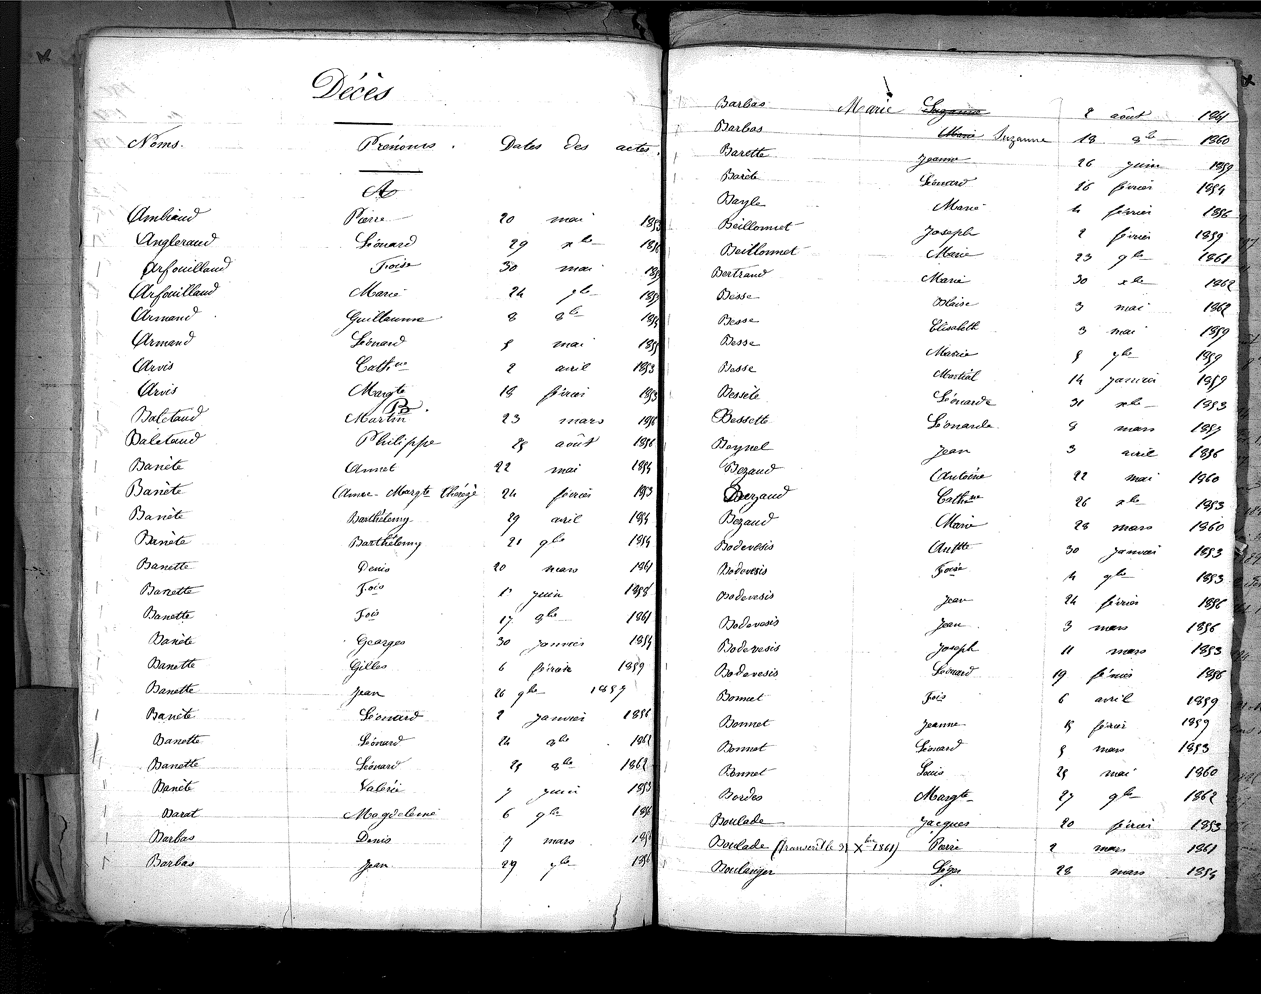 Décès
Noms. Prénoms. Dates des actes.
A
Ambiaud Pierre 20 mai 1853
Angleraud Léonard 29 xbre
Arfouilland Foise 30 mai
Arfouilland Marie 24
Armand Guillaume 8 8bre
Armand Léonard 5 mai
Arvis Cathne 2 avril 1853
Arvis Margte 18 février 1853
B.
Baletaud Martin 23 mars 1856
Baletaud Philippe 25 août
Banète Annet 22 mai 1854
Banète Anne-Margte 24 février 1853
Banète Barthélemy 29 avril 1854
Banète Barthélemy 21 9bre 1854
Banette Denis 20 mars 1861
Banette Fois 1r juin 1858
Banette Fois 17 8bre 1861
Banète Georges 30 janvier 1854
Banette Gilles 6 février 1859
Banette Jean 26 9bre 1857
Banète Léonard 2 janvier 1856
Banette Léonard 24 8bre
Banette Léonard 25 8bre 1862
Banète Valérie 7 juin 1853
Barat Magdeleine 6 9bre
Barbas Denis 7 mars
Barbas Jean 29
Barbas Marie Suzanne 2 août
Barbas Marie Suzanne 18 8bre 1860
Barette Jeanne 26 juin 1859
Barète Léonard 26 février 1854
Bayle Marie 4 février 1856
Beillonnet Joseph 2 février 1859
Beillonnet Marie 23 9bre 1861
Bertrand Marie 30 xbre 1862
Besse Blaise 3 mai 1862
Besse Elisabeth 3 mai 1859
Besse Marie 5 1859
Besse Martial 14 janvier 1859
Bessète Léonarde 31 xbre 1853
Bessette Léonarde 8 mars 1857
Beynel Jean 3 avril 1856
Bezaud Antoine 22 mai 1860
Bezaud Cathne 26 xbre 1853
Bezaud Marie 28 mars 1860
Bodevesis Antte 30 janvier 1853
Bodevesis Foise 4 9bre 1853
Bodevesis Jean 24 février 1856
Bodevesis Jean 3 mars 1856
Bodevesis Joseph 11 mars 1853
Bodevesis Léonard 19 février 1856
Bonnet Fois 6 avril 1859
Bonnet Jeanne 15 février 1859
Bonnet Léonard 5 mars 1853
Bonnet Louis 25 mai 1860
Bordes Margte 27 9bre 1862
Boulade Jacques 20 février 1853
Boulade (transcrit le 31 Xbre 1861) Pierre 2 mars 1861
Boulanger Léger 28 mars 1854